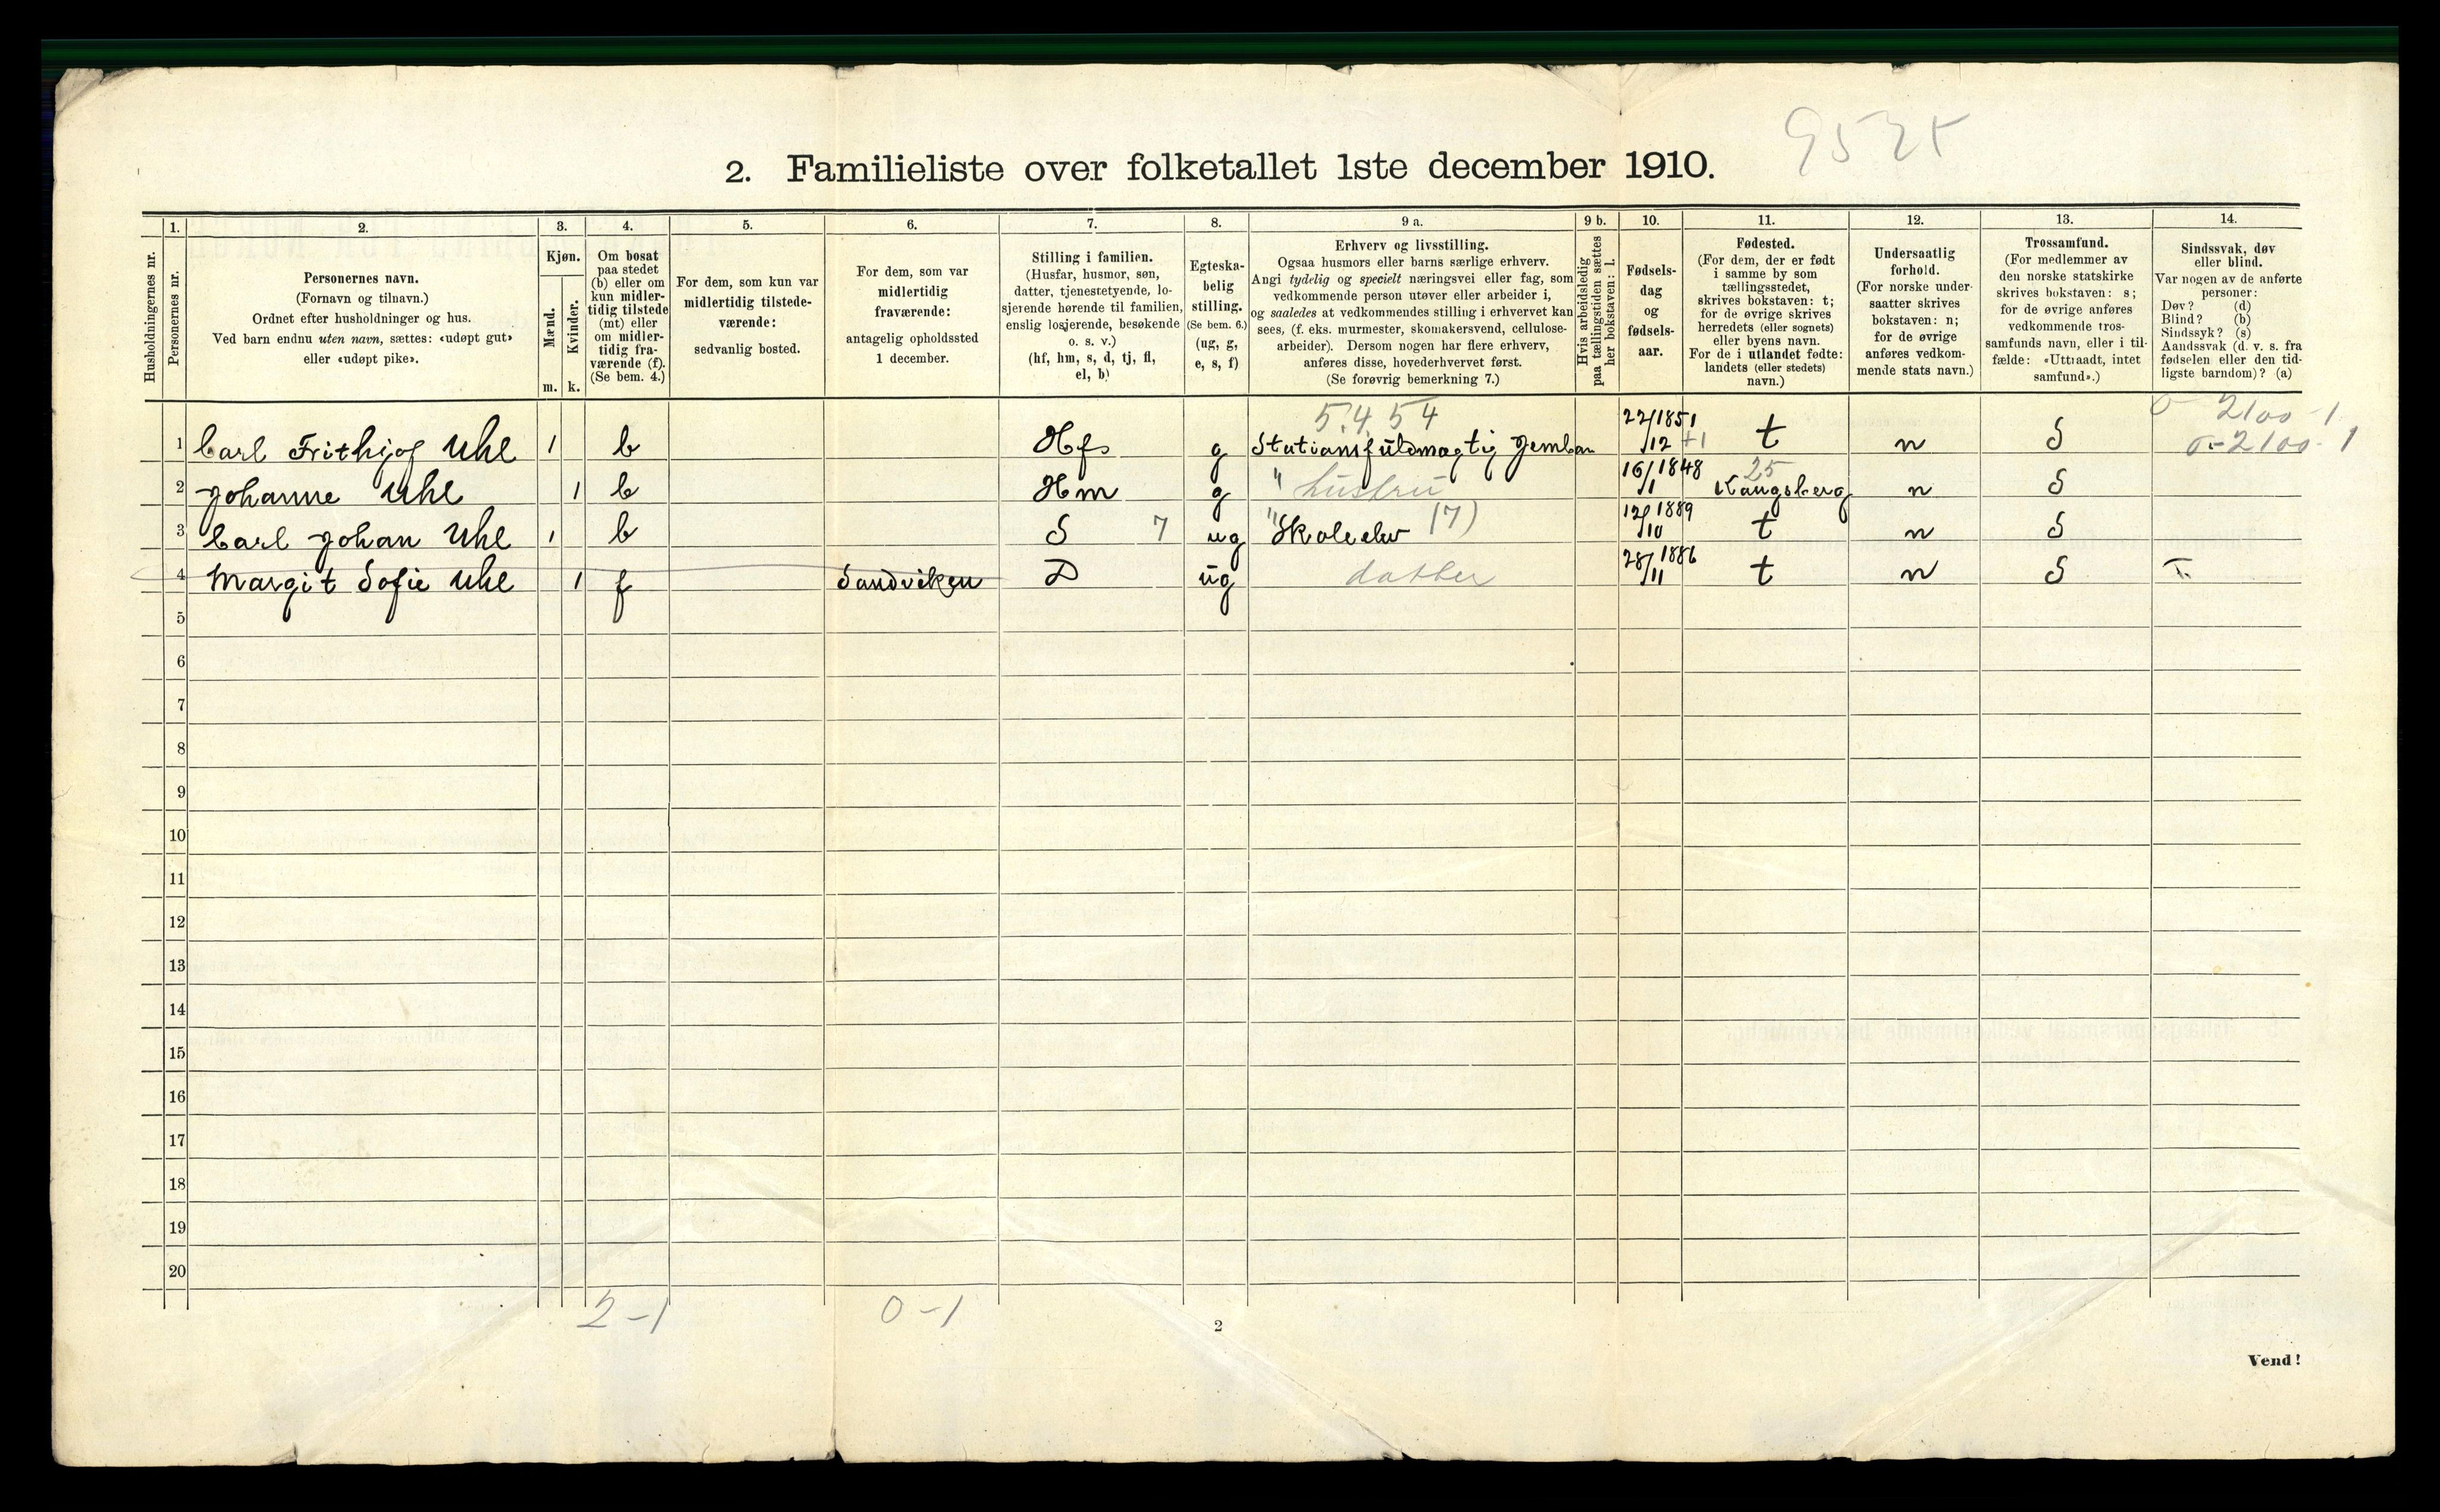 9525
2. Familieliste over folketallet 1ste december 1910.
Husholdningernes nr.
1.
Personernes nr.
2.
Personernes navn.
(Fornavn og tilnavn.)
Ordnet efter husholdninger og hus.
Ved barn endnu uten navn, sættes: «udøpt gut»
eller «udøpt pike».
3.
Kjøn.
Mænd.
Kvinder.
m. k.
4.
Om bosat
paa stedet
(b) eller om
kun midler-
tidig tilstede
(mt) eller
om midler-
tidig fra-
værende (f).
(Se bem. 4.)
5.
For dem, som kun var
midlertidig tilstede-
værende:
sedvanlig bosted.
6.
For dem, som var
midlertidig
fraværende:
antagelig opholdssted
1 december.
7.
Stilling i familien.
(Husfar, husmor, søn,
datter, tjenestetyende, lo-
sjerende hørende til familien,
enslig losjerende, besøkende
o. s. v.)
(hf, hm, s, d, tj, fl,
el, b)
8.
Egteska-
belig
stilling.
(Se bem. 6.)
(ug, g,
e, s, f)
9 a.
Erhverv og livsstilling.
Ogsaa husmors eller barns særlige erhverv.
Angi tydelig og specielt næringsvei eller fag, som
vedkommende person utøver eller arbeider i,
og saaledes at vedkommendes stilling i erhvervet kan
sees, (f. eks. murmester, skomakersvend, cellulose-
arbeider). Dersom nogen har flere erhverv,
anføres disse, hovederhvervet først.
(Se forøvrig bemerkning 7.)
9 b.
Hvis arbeidsledig
paa tællingstiden sættes
her bokstaven: l.
10.
Fødsels-
dag
og
fødsels-
aar.
11.
Fødested.
(For dem, der er født
i samme by som
tællingsstedet,
skrives bokstaven: t;
for de øvrige skrives
herredets (eller sognets)
eller byens navn.
For de i utlandet fødte:
landets (eller stedets)
navn.)
12.
Undersaatlig
forhold.
(For norske under-
saatter skrives
bokstaven: n;
for de øvrige
anføres vedkom-
mende stats navn.)
13.
Trossamfund.
(For medlemmer av
den norske statskirke
skrives bokstaven: s;
for de øvrige anføres
vedkommende tros-
samfunds navn, eller i til-
fælde: «Uttraadt, intet
samfund».)
14.
Sindssvak, døv
eller blind.
Var nogen av de anførte
personer:
Døv? (d)
Blind? (b)
Sindssyk? (s)
Aandssvak (d. v. s. fra
fødselen eller den tid-
ligste barndom)? (a)
5.4.54 2100-1
1 Carl Frithjof Uhl 1 b Hf g Stationsfuldmægtig Jernban 22/12 1851 +1 t n S 2100-1
2 Johanne Uhl 1 b Hm g " hustru 16/1 1848 25 Kongsberg n S
3 Carl Johan Uhl 1 b S 7 ug " Skoleelev (7) 12/10 1889 t n S
4 Margit Sofie Uhl 1 f Sandviken D ug datter 28/11 1886 t n S
5
6
7
8
9
10
11
12
13
14
15
16
17
18
19
20
2-1 0-1
2
Vend!